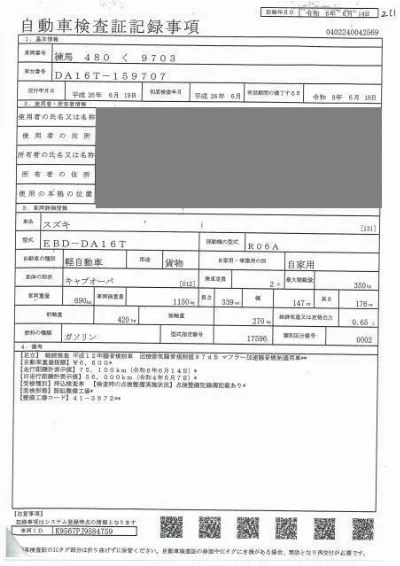 自動車検査証記録事項
記録年月日 令和 6年 6月 14日
211
0402240042569
1. 基本情報
車両番号 練馬 480 く 9703
車台番号 DA16T-159707
交付年月日 平成 26年 6月 19日 初度検査年月 平成 26年 6月 有効期間の満了する日 令和 8年 6月 18日
2. 使用者・所有者情報
使用者の氏名又は名称
使用者の住所
所有者の氏名又は名称
所有者の住所
使用の本拠の位置
3. 車両詳細情報
車名 スズキ [131]
型式 EBD-DA16T 原動機の型式 R06A
自動車の種別 軽自動車 用途 貨物 自家用・事業用の別 自家用
車体の形状 キャブオーバ [012] 乗車定員 2人 最大積載量 350kg
車両重量 690kg 車両総重量 1150kg 長さ 339cm 幅 147cm 高さ 176cm
前軸重 420kg 後軸重 270kg 総排気量又は定格出力 0.65L
燃料の種類 ガソリン 型式指定番号 17596 類別区分番号 0002
4. 備考
[足立] 継続検査 平成12年騒音規制車 近接排気騒音規制値97dB マフラー加速騒音規制適用車**
[自動車重量税額]¥6,600*
[走行距離計表示値]75,100km(令和6年6月14日)*
[旧走行距離計表示値]56,000km(令和4年6月7日)*
[受検種別]持込検査車 [検査時の点検整備実施状況]点検整備記録簿記載あり*
[受検形態]認証整備工場*
[整備工場コード]41-3972**
[注意事項]
記録事項はシステム登録時点の情報となります
車両ID E9567PJ9584759
車検査証のICタグ部分は折り曲げずに保管ください。自動車検査証の券面やICタグにき損がある場合、無効となり再交付が必要です。